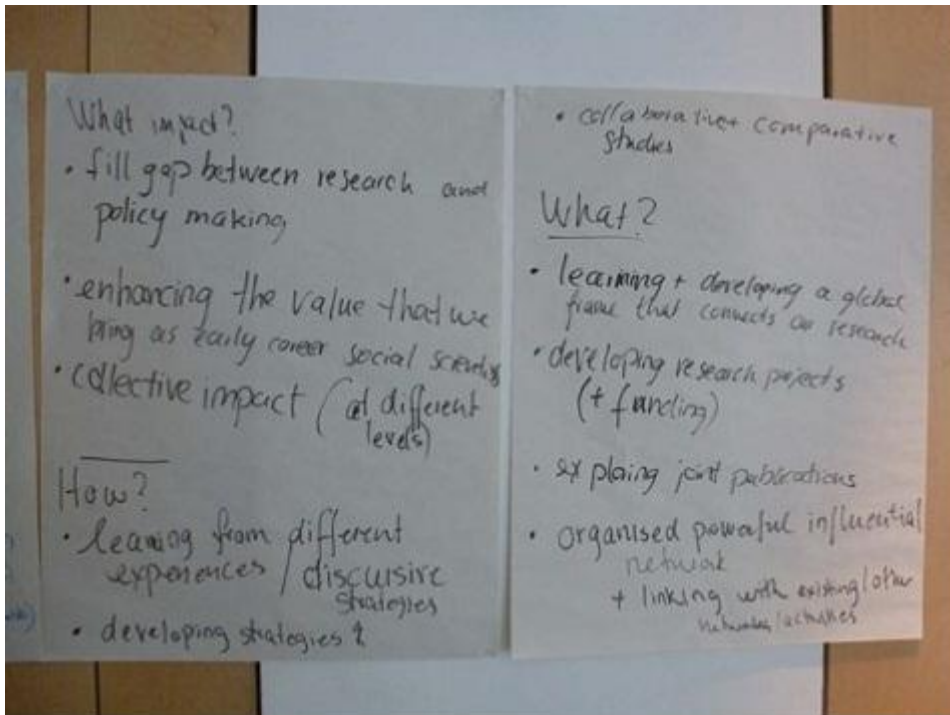 What impact?
• fill gap between research and
policy making
• enhancing the value that we
bring as early career social scientists
• collective impact (at different
levels)
How?
• learning from different
experiences / discursive
strategies
• developing strategies &
• collaborative + comparative
studies
What?
• learning + developing a global
frame that connects our research
• developing research projects
(+ funding)
• exploring joint publications
• organised powerful influential
network
+ linking with existing/other
networks/activities